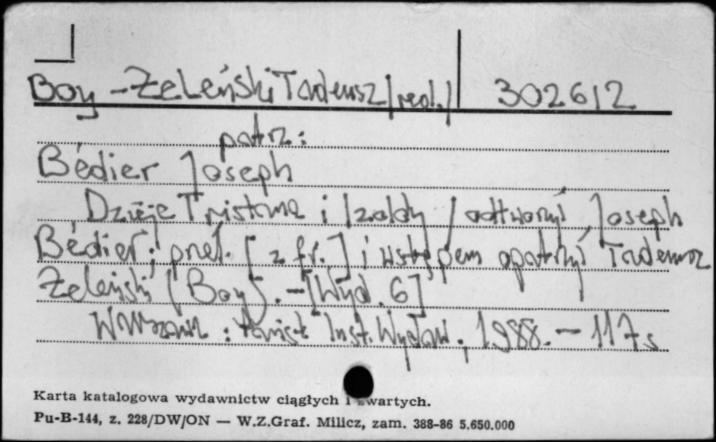 Boy-Żeleński Tadeusz (red.) 302612
patrz:
Bédier Joseph
Dzieje Tristana i Izoldy / odtworzył Joseph
Bédier; przeł. [z fr.] i wstępem opatrzył Tadeusz
Żeleński (Boy). - [Wyd. 6]
Warszawa: Państ. Inst. Wydaw., 1988. - 117 s
Karta katalogowa wydawnictw ciągłych i zwartych.
Pu-B-144, z. 228/DW/ON — W.Z.Graf. Milicz, zam. 388-86 5.650.000